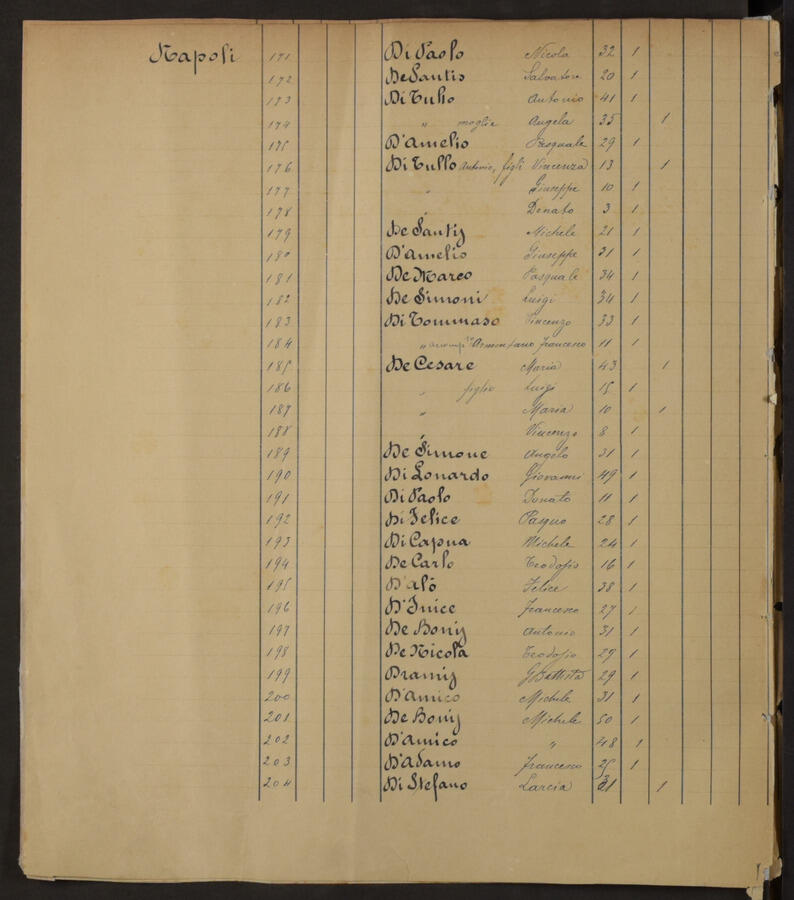 Napoli 171 Di Paolo Nicola 32 1
172 De Santis Salvatore 20 1
173 Di Tullio Antonio 41 1
174 " moglie Angela 35 1
175 D'Amelio Pasquale 29 1
176 Di Tullo Antonio, figli Vincenza 13 1
177 " Giuseppe 10 1
178 " Donato 3 1
179 De Santis Michele 21 1
180 D'Amelio Giuseppe 31 1
181 De Marco Pasquale 34 1
182 De Simoni Luigi 34 1
183 Di Tommaso Vincenzo 33 1
184 " Francesco 11 1
185 De Cesare Maria 43 1
186 " figlio Luigi 15 1
187 " Maria 10 1
188 " Vincenzo 8 1
189 De Simone Angelo 31 1
190 Di Lonardo Giovanni 49 1
191 Di Paolo Donato 11 1
192 Di Felice 28 1
193 Di Capua Michele 24 1
194 De Carlo Teodosio 16 1
195 D'Alò Felice 38 1
196 D'Inice Francesco 27 1
197 De Bonis Antonio 31 1
198 De Nicola Teodosio 27 1
199 Dramis GBattista 29 1
200 D'Amico Michele 31 1
201 De Bonis Michele 50 1
202 D'Amico " 48 1
203 D'Adamo Francesco 25 1
204 Di Stefano 1